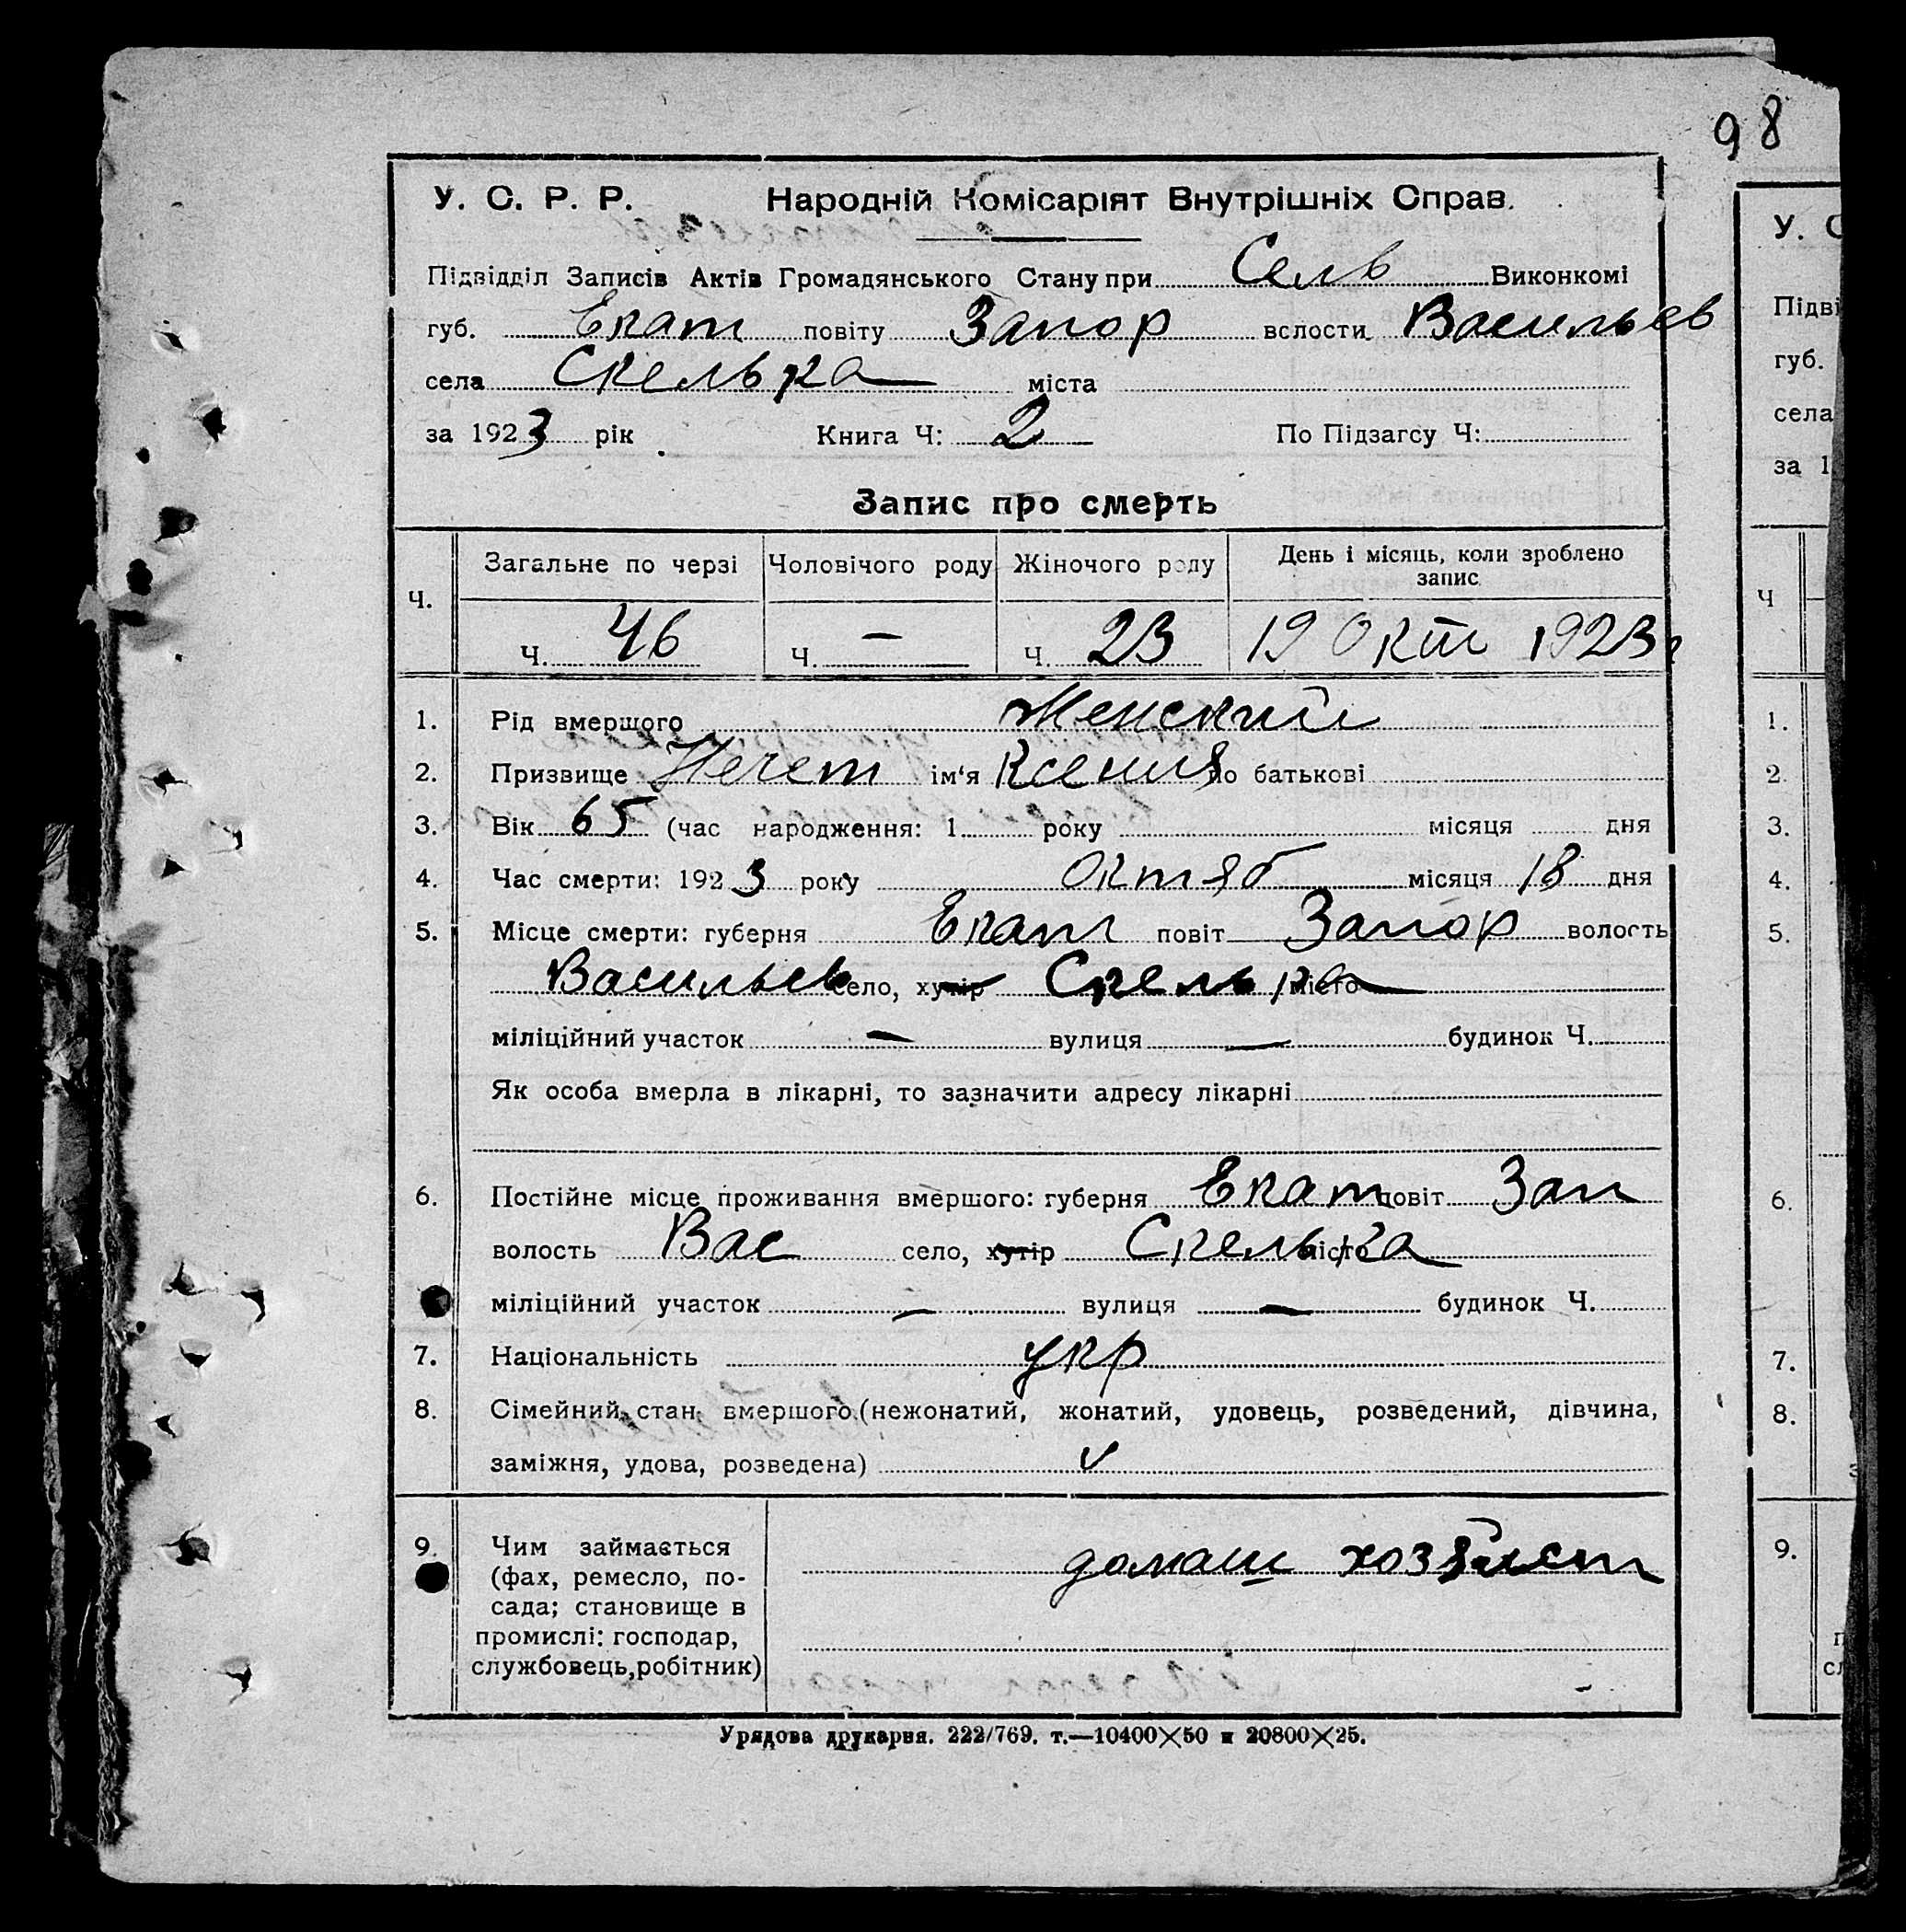 98
У. С. Р. Р. Народній Комісаріят Внутрішніх Справ.
Підвідділ Записів Актів Громадянського Стану при Сель Виконкомі
губ. Екат повіту Запор вслости Васильев
села Скелька міста
за 1923 рік Книга Ч: 2 По Підзагсу Ч:
Запис про смерть
Ч. Загальне по черзі Чоловічого роду Жіночого роду День і місяць, коли зроблено запис
Ч. 46 Ч. — Ч. 23 19 Окт 1923 г
1. Рід вмершого Женский
2. Призвище Нечет ім‘я Ксения по батькові
3. Вік 65 (час народження: 1 року місяця дня
4. Час смерти: 1923 року Октяб місяця 18 дня
5. Місце смерти: губерня Екат повіт Запор волость
Васильев село, хутір Скелька місто
міліційний участок — вулиця — будинок Ч.
Як особа вмерла в лікарні, то зазначити адресу лікарні
6. Постійне місце проживання вмершого: губерня Екат повіт Зап
волость Вас село, хутір Скелька місто
міліційний участок — вулиця — будинок Ч.
7. Національність укр
8. Сімейний стан вмершого (нежонатий, жонатий, удовець, розведений, дівчина,
заміжня, удова, розведена) v
9. Чим займається домаш хозяйст
(фах, ремесло, по-
сада; становище в
промислі: господар,
службовець, робітник)
Урядова друкарня. 222/769. т.—10400×50 и 20800×25.
У. С
Підві
губ.
села
за 1
Ч
1.
2.
3.
4.
5.
6.
7.
8.
9.